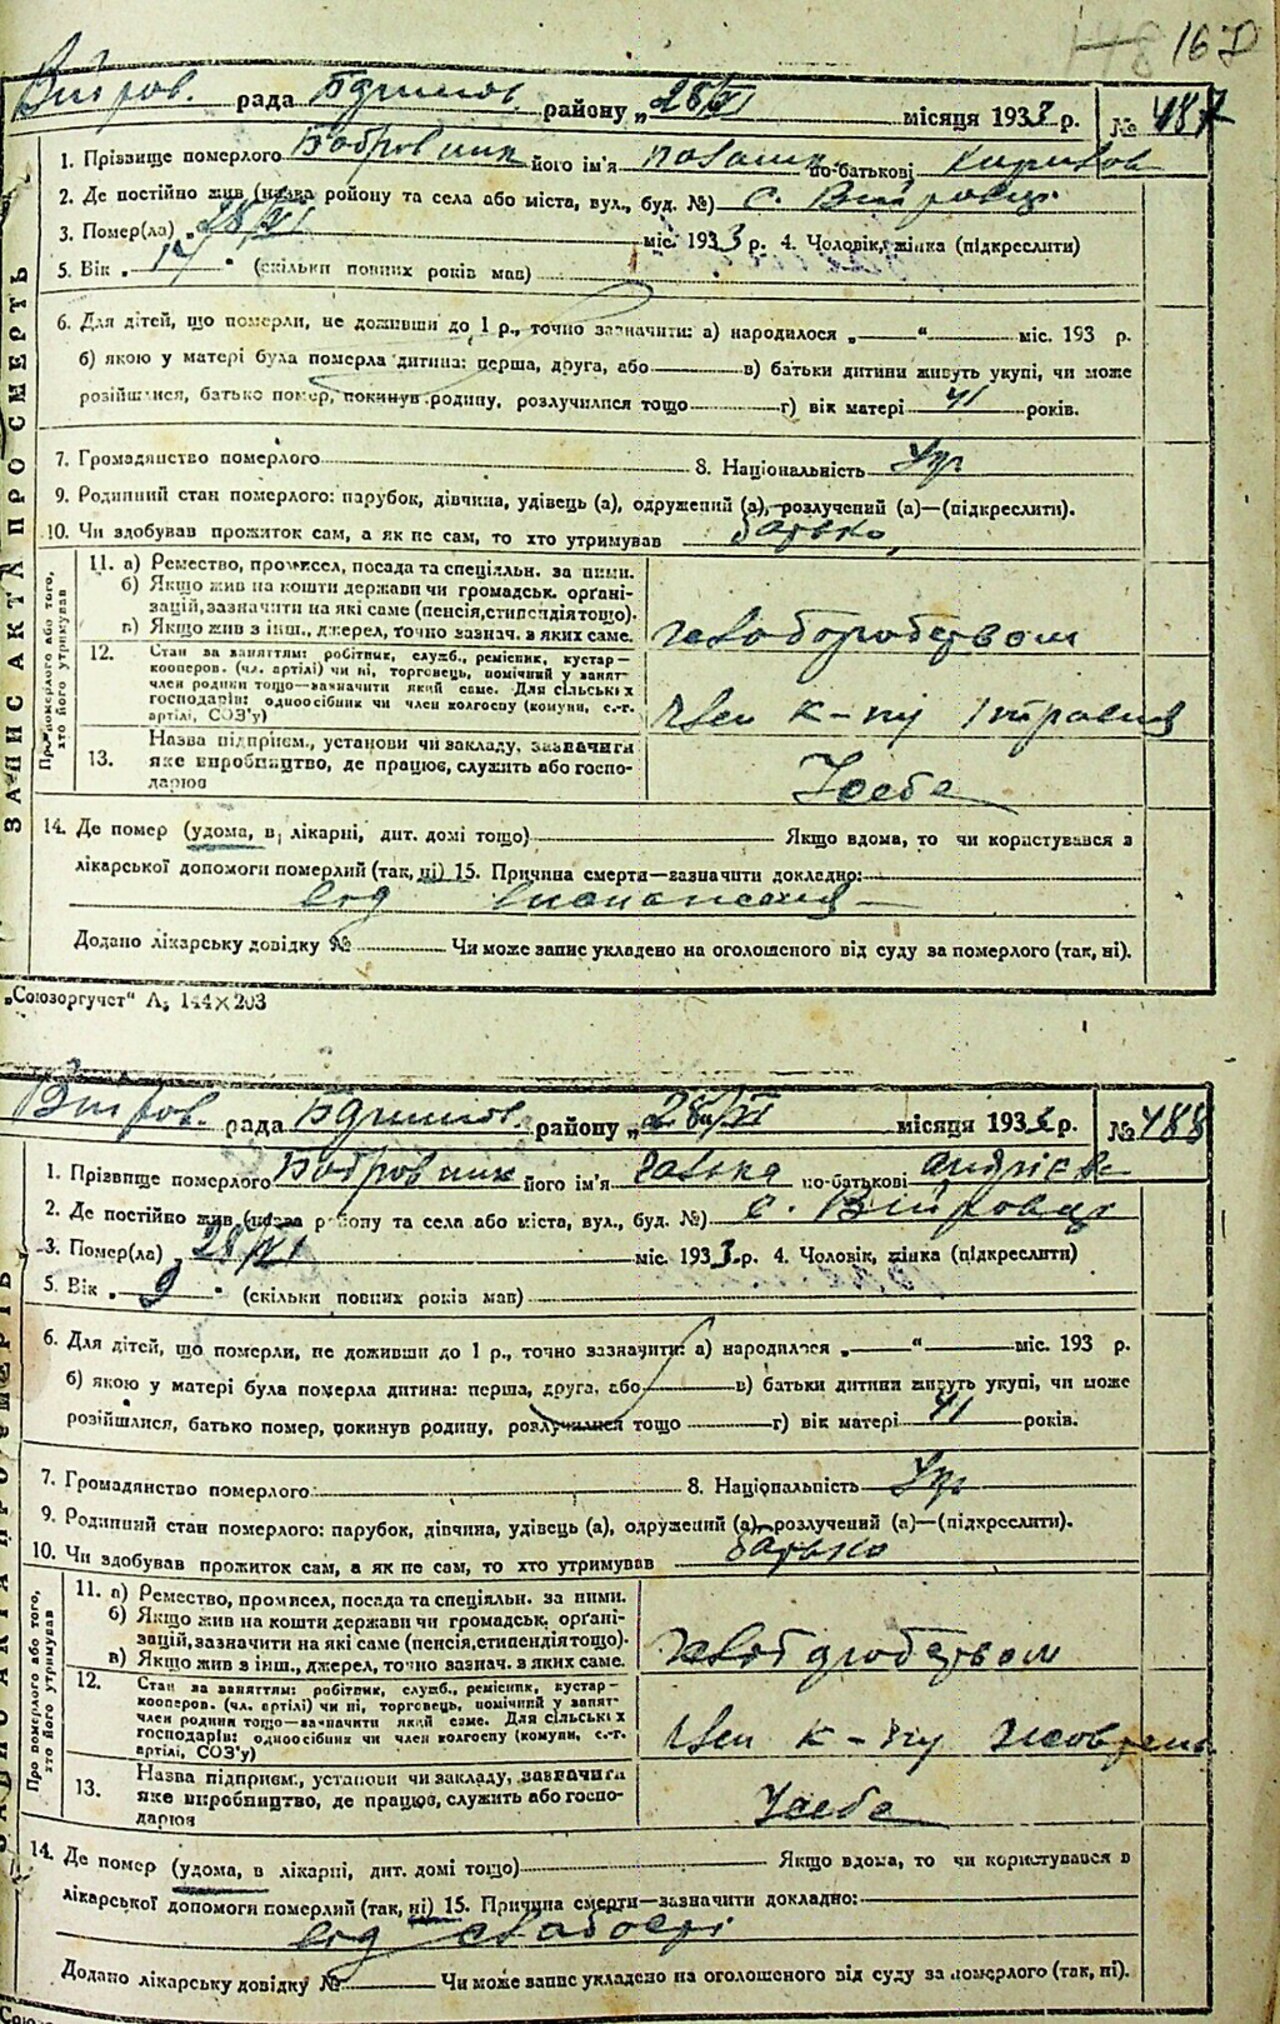 167
Вітров. рада району „28/VI місяця 1933 р. № 487
1. Прізвище померлого Бобровник його ім'я по-батькові
2. Де постійно жив (назва району та села або міста, вул., буд. №) с. Вітровці
3. Помер(ла) „28/VI міс. 1933 р. 4. Чоловік, жінка (підкреслити)
5. Вік „ “ (скільки повних років мав)
6. Для дітей, що померли, не доживши до 1 р., точно зазначити: а) народилося „ “ міс. 193 р.
б) якою у матері була померла дитина: перша, друга, або в) батьки дитини живуть укупі, чи може
розійшлися, батько помер, покинув родину, розлучилися тощо г) вік матері 41 років.
7. Громадянство померлого 8. Національність Укр
9. Родинний стан померлого: парубок, дівчина, удівець (а), одружений (а), розлучений (а)—(підкреслити).
10. Чи здобував прожиток сам, а як не сам, то хто утримував батько
ЗАПИС АКТА ПРО СМЕРТЬ
Про померлого або того, хто його утримував
11. а) Ремество, промисел, посада та спеціяльн. за ними.
б) Якщо жив на кошти держави чи громадськ. орґані-
зацій, зазначити на які саме (пенсія, стипендія тощо).
в) Якщо жив з інш., джерел, точно зазнач. з яких саме.
хлоборобством
12. Стан за заняттям: робітник, служб., ремісник, кустар—
кооперов. (чл. артілі) чи ні, торговець, помічний у занят-
член родини тощо—зазначити який саме. Для сільських
господарів: одноосібник чи член колгоспу (комуни, с.-г.
артілі, СОЗ'у)
член к-пу
13. Назва підприєм., установи чи закладу, зазначити
яке виробництво, де працює, служить або госпо-
дарює
У себе
14. Де помер (удома, в лікарні, дит. домі тощо) Якщо вдома, то чи користувався з
лікарської допомоги померлий (так, ні) 15. Причина смерти—зазначити докладно:
від
Додано лікарську довідку № Чи може запис укладено на оголошеного від суду за померлого (так, ні).
„Союзоргучет“ А₅ 144×203
Вітров. рада району „28/VI місяця 1933 р. № 488
1. Прізвище померлого Бобровник його ім'я Галька по-батькові Андрієв
2. Де постійно жив (назва району та села або міста, вул., буд. №) с. Вітровці
3. Помер(ла) „28/VI міс. 1933 р. 4. Чоловік, жінка (підкреслити)
5. Вік „ 9 “ (скільки повних років мав)
6. Для дітей, що померли, не доживши до 1 р., точно зазначити: а) народилося „ “ міс. 193 р.
б) якою у матері була померла дитина: перша, друга, або в) батьки дитини живуть укупі, чи може
розійшлися, батько помер, покинув родину, розлучилися тощо г) вік матері 41 років.
7. Громадянство померлого 8. Національність Укр
9. Родинний стан померлого: парубок, дівчина, удівець (а), одружений (а), розлучений (а)—(підкреслити).
10. Чи здобував прожиток сам, а як не сам, то хто утримував батько
Про померлого або того, хто його утримував
11. а) Ремество, промисел, посада та спеціяльн. за ними.
б) Якщо жив на кошти держави чи громадськ. орґані-
зацій, зазначити на які саме (пенсія, стипендія тощо).
в) Якщо жив з інш., джерел, точно зазнач. з яких саме.
12. Стан за заняттям: робітник, служб., ремісник, кустар—
кооперов. (чл. артілі) чи ні, торговець, помічний у занят-
член родини тощо—зазначити який саме. Для сільських
господарів: одноосібник чи член колгоспу (комуни, с.-г.
артілі, СОЗ'у)
член к-пу
13. Назва підприєм., установи чи закладу, зазначити
яке виробництво, де працює, служить або госпо-
дарює
У себе
14. Де помер (удома, в лікарні, дит. домі тощо) Якщо вдома, то чи користувався з
лікарської допомоги померлий (так, ні) 15. Причина смерти—зазначити докладно:
від слабості
Додано лікарську довідку № Чи може запис укладено на оголошеного від суду за померлого (так, ні).